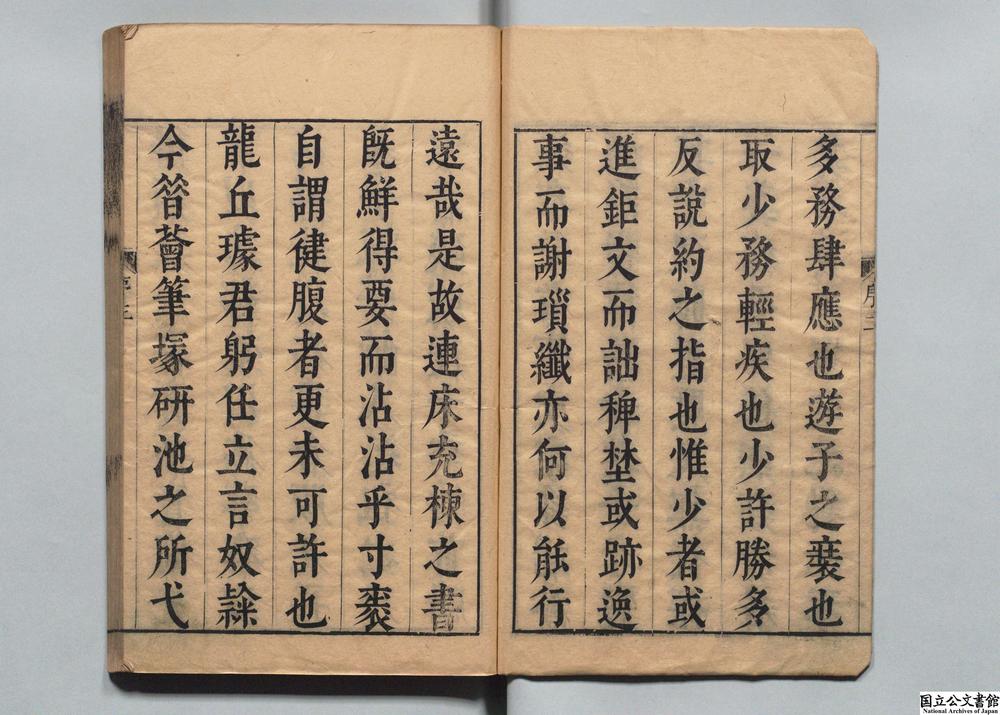 多務肆應也遊子之裝也
取少務輕疾也少許勝多
反說約之指也惟少者或
進鉅文而詘稗埜或跡逸
事而謝瑣纖亦何以能行
序二
遠哉是故連床充棟之書
旣鮮得要而沾沾乎寸裘
自謂倢腹者更未可許也
龍丘璩君躬任立言奴隸
今昝薈筆塚硏池之所弋
序三
国立公文書館
National Archives of Japan